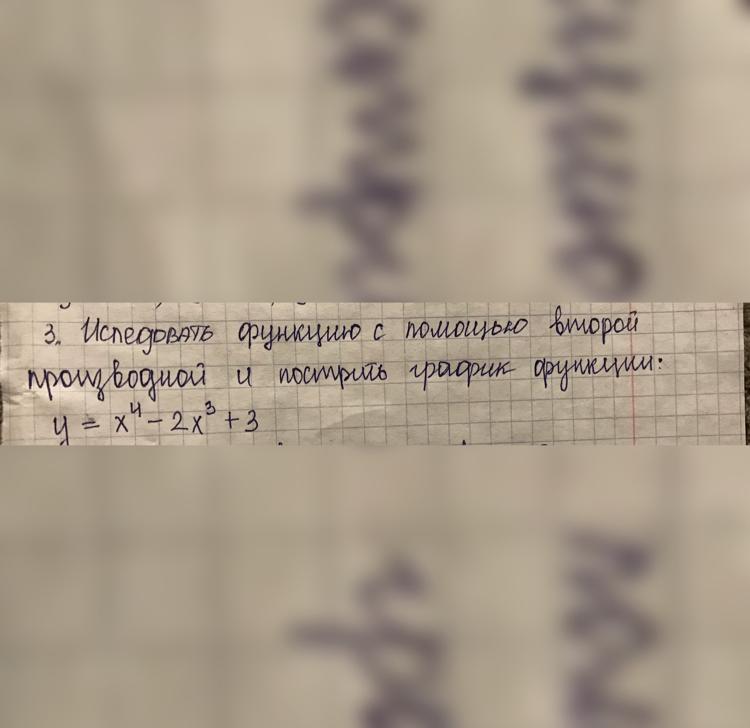 3. Иследовать функцию с помощью второй
производной и пострить график функции:
y = x⁴ - 2x³ + 3